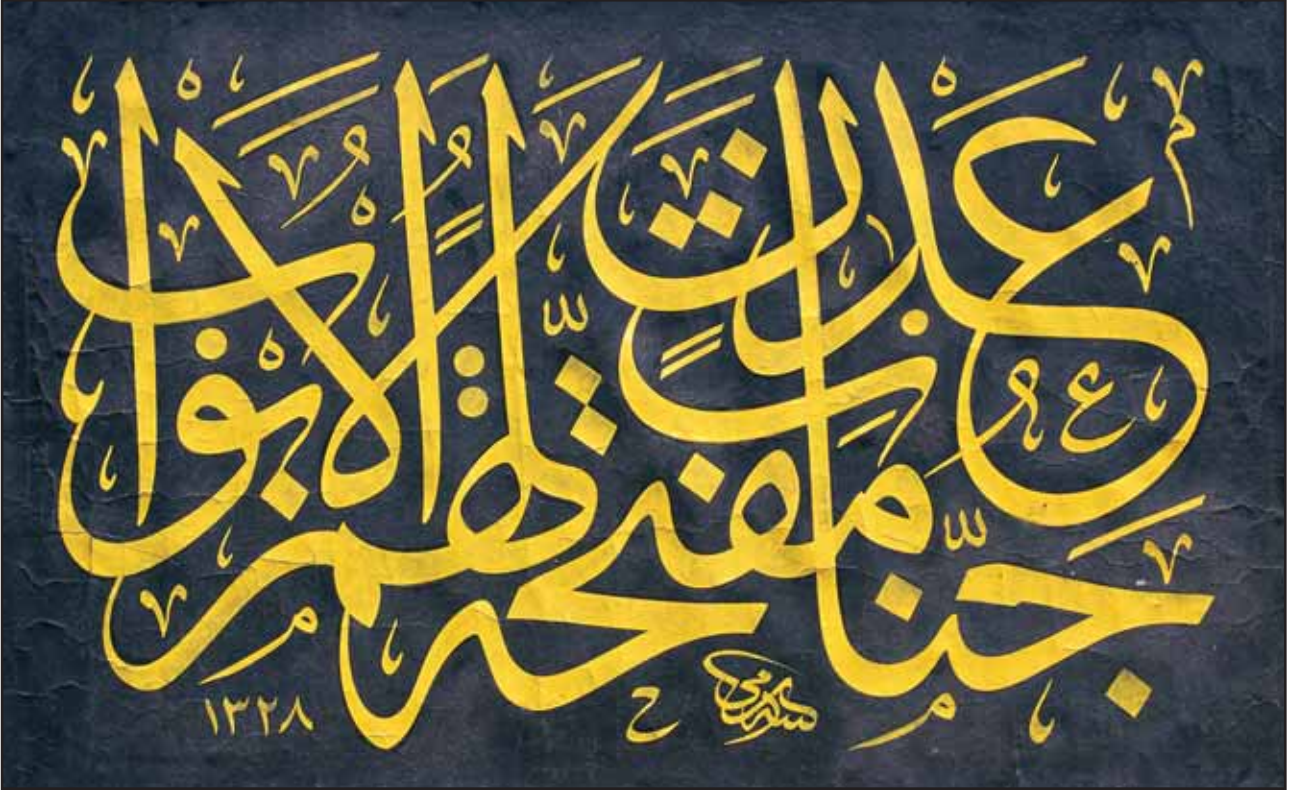 جَنَّاتِ عَدْنٍ مُفَتَّحَةً لَهُمُ الْاَبْوَابُ
سامی
١٣٢٨